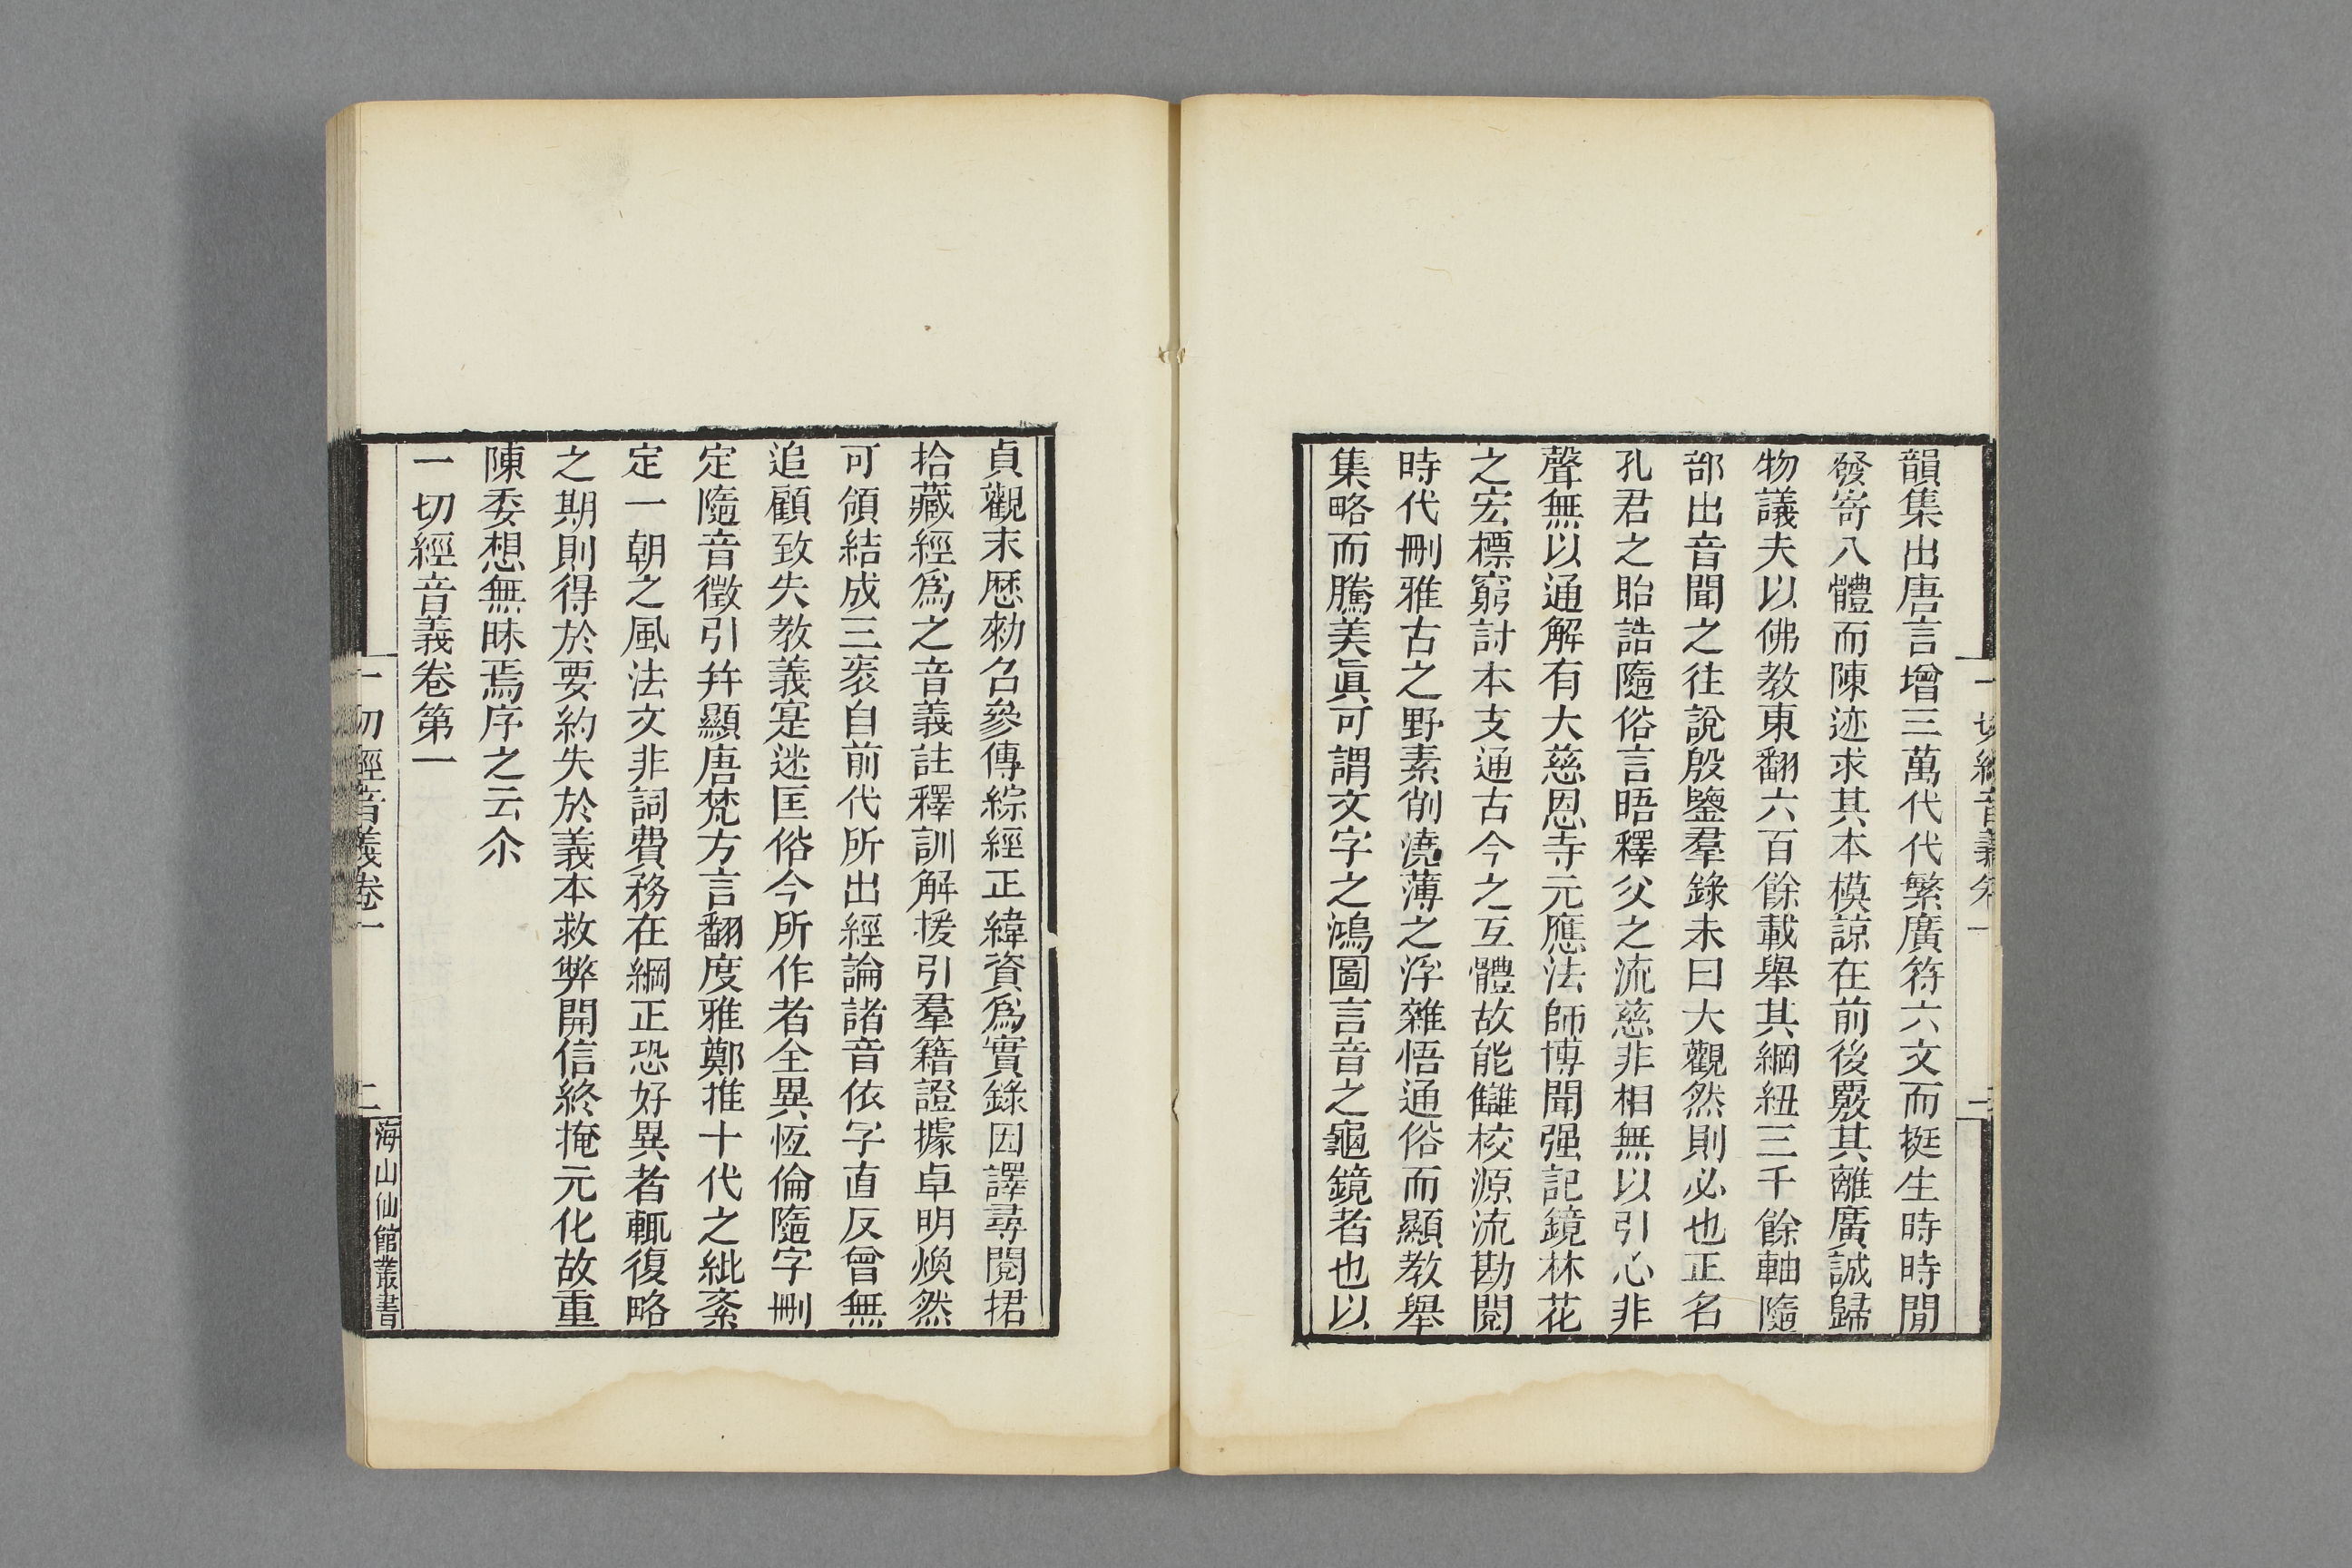 韻集出唐言增三萬代代繁廣符六文而挺生時時閒
發寄八體而陳迹求其本模諒在前後覈其離廣誠歸
物議夫以佛教東翻六百餘載舉其綱紐三千餘軸隨
部出音聞之往說殷鑒羣錄未曰大觀然則必也正名
孔君之貽誥隨俗言晤釋父之流慈非相無以引心非
聲無以通解有大慈恩寺元應法師博聞强記鏡林花
之宏標窮討本支通古今之互體故能讎校源流勘閱
時代刪雅古之野素削澆薄之浮雜悟通俗而顯教舉
集略而騰美眞可謂文字之鴻圖言音之龜鏡者也以
一切經音義卷一
貞觀末厯勑召參傳綜經正緯資爲實錄因譯尋閱捃
拾藏經爲之音義註釋訓解援引羣籍證據卓明煥然
可領結成三袠自前代所出經論諸音依字直反曾無
追顧致失教義寔迷匡俗今所作者全異恆倫隨字刪
定隨音徵引并顯唐梵方言翻度雅鄭推十代之紕紊
定一朝之風法文非詞費務在綱正恐好異者輒復略
之期則得於要約失於義本救弊開信終掩元化故重
陳委想無昧焉序之云尒
一切經音義卷第一
一切經音義卷一
二
海山仙館叢書